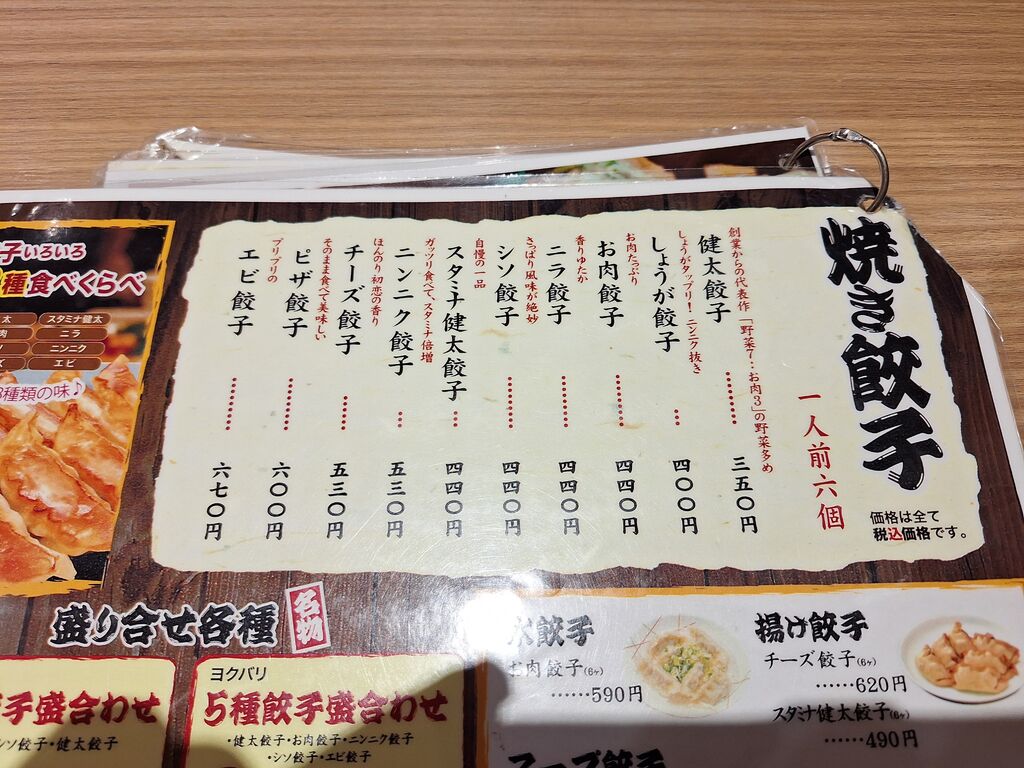 焼き餃子
一人前六個
価格は全て
税込価格です。
創業からの代表作「野菜7：お肉3」の野菜多め
健太餃子………三五〇円
しょうがタップリ！ニンニク抜き
しょうが餃子…四〇〇円
お肉たっぷり
お肉餃子………四四〇円
香りゆたか
ニラ餃子………四四〇円
さっぱり風味が絶妙
シソ餃子………四四〇円
自慢の一品
スタミナ健太餃子…四四〇円
ガッツリ食べて、スタミナ倍増
ニンニク餃子…五三〇円
ほんのり初恋の香り
チーズ餃子……五三〇円
そのまま食べて美味しい
ピザ餃子………六〇〇円
プリプリの
エビ餃子………六七〇円
子いろいろ
種食べくらべ
太
スタミナ健太
肉
ニラ
ニンニク
エビ
種類の味♪
盛り合せ各種
名物
子盛合わせ
シソ餃子・健太餃子
ヨクバリ
5種餃子盛合わせ
・健太餃子・お肉餃子・ニンニク餃子
・シソ餃子・エビ餃子
餃子
お肉餃子(6ヶ)
……590円
揚げ餃子
チーズ餃子(6ヶ)
……620円
スタミナ健太餃子(6ヶ)
……490円